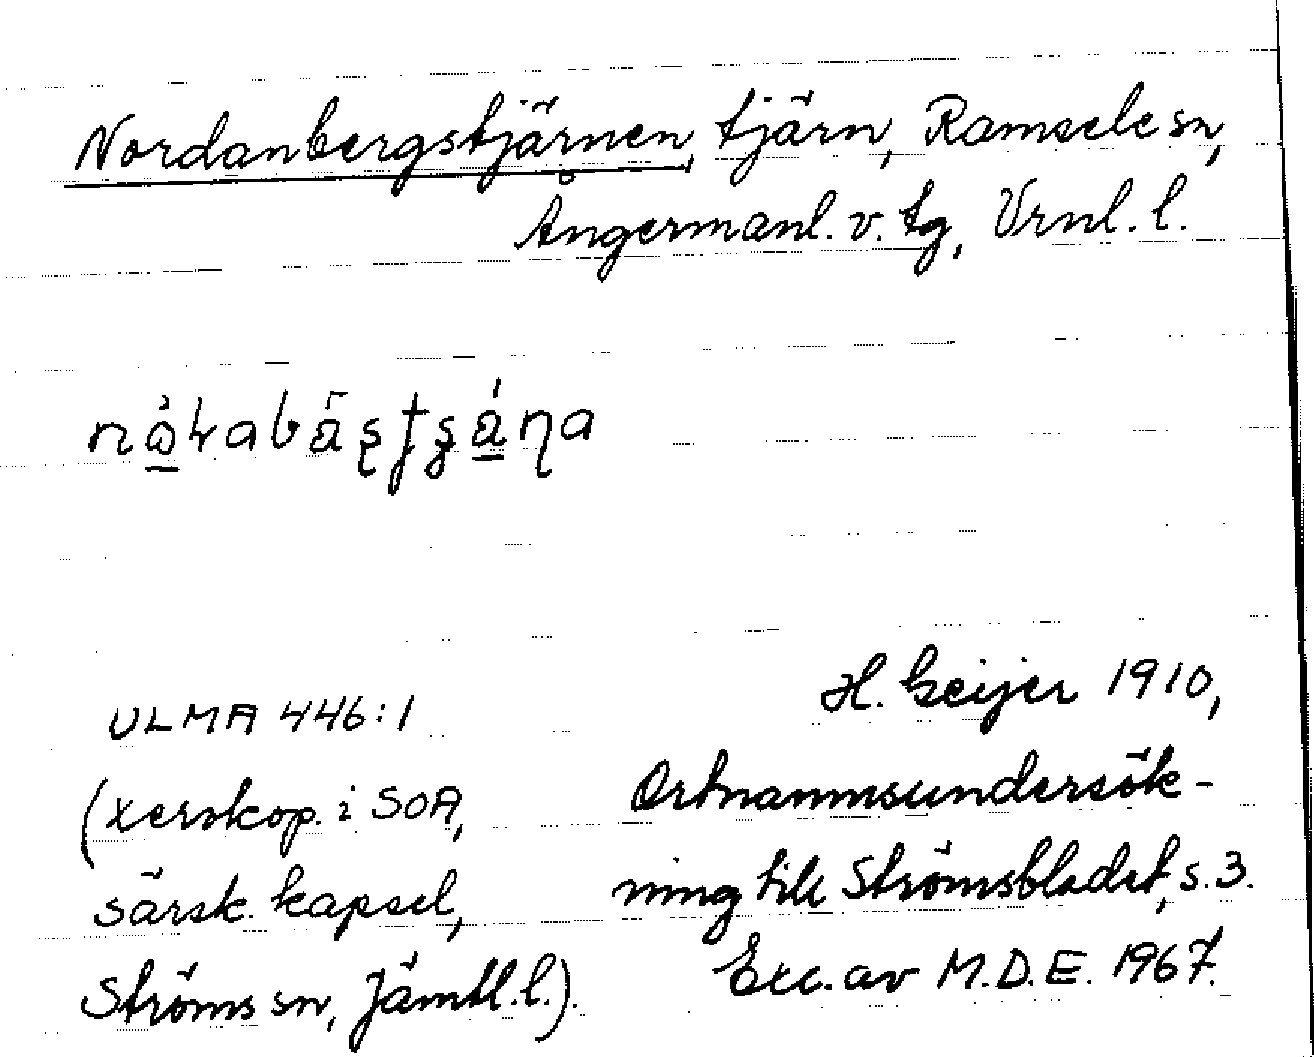 Nordanbergstjärnen, tjärn, Ramsele sn,
Ångermanl. v. tg, Vrnl. l.
H. Geijer 1910,
ULMA 446:1
Ortnamnsundersök-
(xerskop. i SOA,
ning till Strömsbladet, s. 3.
särsk. kapsel,
Exc. av M.D.E. 1967.
Ströms sn, Jämtl. l.).